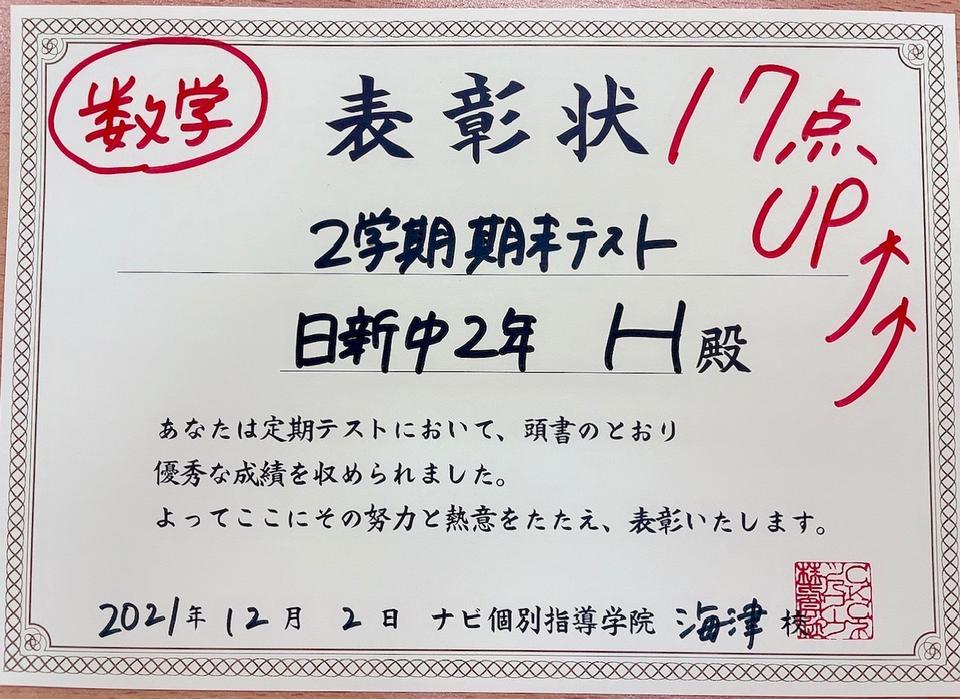 数学
表彰状
17点
UP
2学期期末テスト
日新中2年 H殿
あなたは定期テストにおいて、頭書のとおり
優秀な成績を収められました。
よってここにその努力と熱意をたたえ、表彰いたします。
2021年 12月 2日 ナビ個別指導学院 海津 校